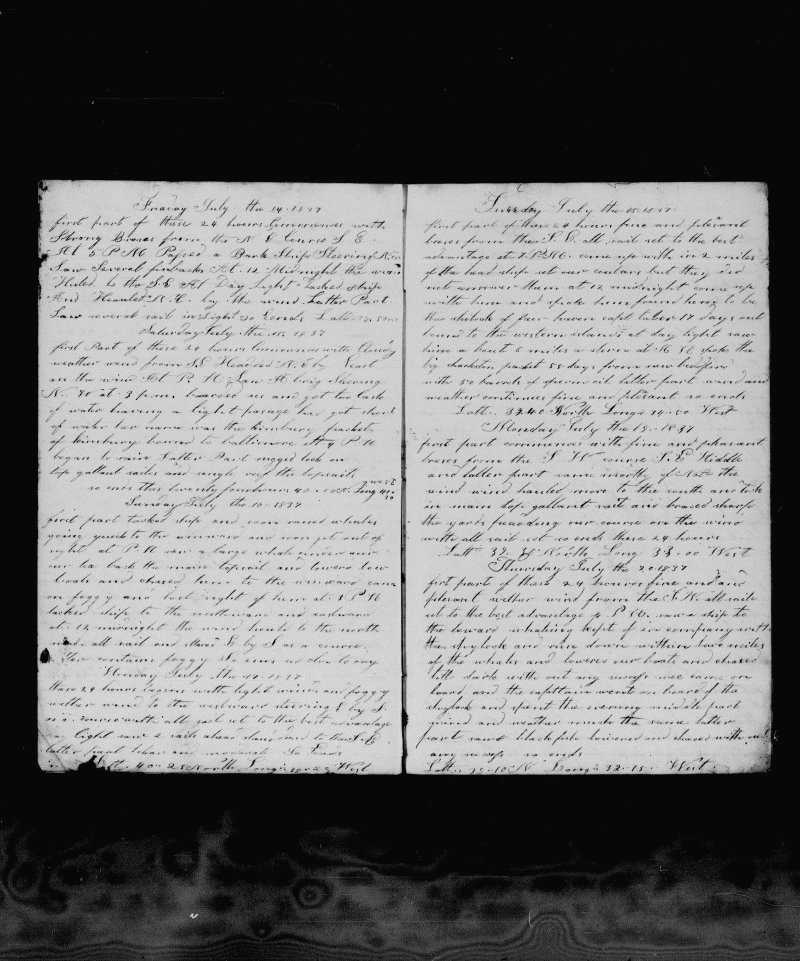 Friday July the 14 1837
first part of these 24 hours Commences with
Strong Breses from the N E Course S E
At 5 P M Passed a Bark Ship Stering
Saw Several finbacks At 12 Midnight the wind
Hailed to the S E At Day Light tacked Ship
And Headed N. E. by the wind Latter Part
Saw several sail in Sight So Ends Latt
Saturday July the 15 1837
first Part of these 24 hours Commences with Cloudy
weather wind from S E Headed N. E by East
on the wind At P. M Saw A brig Stering
N. W at 3 p.m. boarded us and got ten Cask
of water having a light pasage had got short
of water her name was the Kinsbury packets
of Kinsbury bound to baltimore at 4 P. M
began to rain Latter Part rugged look on
top gallant sailes and single reef the topsails
so ends this twenty four hours 40 Long 41 west
Sunday July the 16 1837
first part tacked ship and soon raised whales
going quick to the winward and soon got out of
sight at P. M saw a large whale under our
lea back the main topsail and lowerd tow
boats and chased him to the winward came
on foggy and lost sight of him at P M
tacked ship to the northward and eastward
at 12 midnight the wind hauled to the north
made all sail and stered E by S as a course
contains foggy So ends no observation to day
Monday July the 17 1837
these 24 hours begins with light winds and foggy
wether wind to the westward steering E by S.
as a course with all sail set to the best advantage
day light saw 2 sails ahead standing to the S. E
latter part clear and moderate So Ends
Latt. 40-25 North Longa West
Tuesday July the 18 1837
first part of these 24 hours fine and plesant
breses from the S. E. all sail set to the best
advantage at P M. come up with in 2 miles
of the head ship set our coulars but they did
not answer them at 12 midnight come up
with him and spoke him found him to be
the shylock of fair haven capt taber 17 days out
bound to the western islands at day light saw
him a bout 6 miles a stern at M spoke the
big charleston packet 55 days from new bedford
with 50 barrels of sperm oil latter part wind and
weather continues fine and plesant so ends
Latt. 39.40 North Longa 34-50 West
Wensday July the 19. 1837
first part commences with fine and pleasant
breses from the S. W course S. E Middle
and latter part same worthy of Note the
wind wind hauled more to the south and took
in main top gallant sail and braced sharp
the yards heading our course on the wind
with all sail set so ends these 24 hours
Latt. 39. North Long 33-00 West
Thursday July the 20 1837
first part of these 24 hours fine and
plesant wether wind from the S. W. all sail
set to the best advantage P. M. saw a ship to
the leward whaleing kept of in company with
the shylock and run down within two miles
of the whales and lowerd our boats and chased
till dark with out any success came on
board and the capttain went on board of the
shylock and spent the evening middle part
wind and weather much the same latter
part saw blackfish lowered and chased with out
any success so ends
Latt. 39-10 N Longa 32-15. West